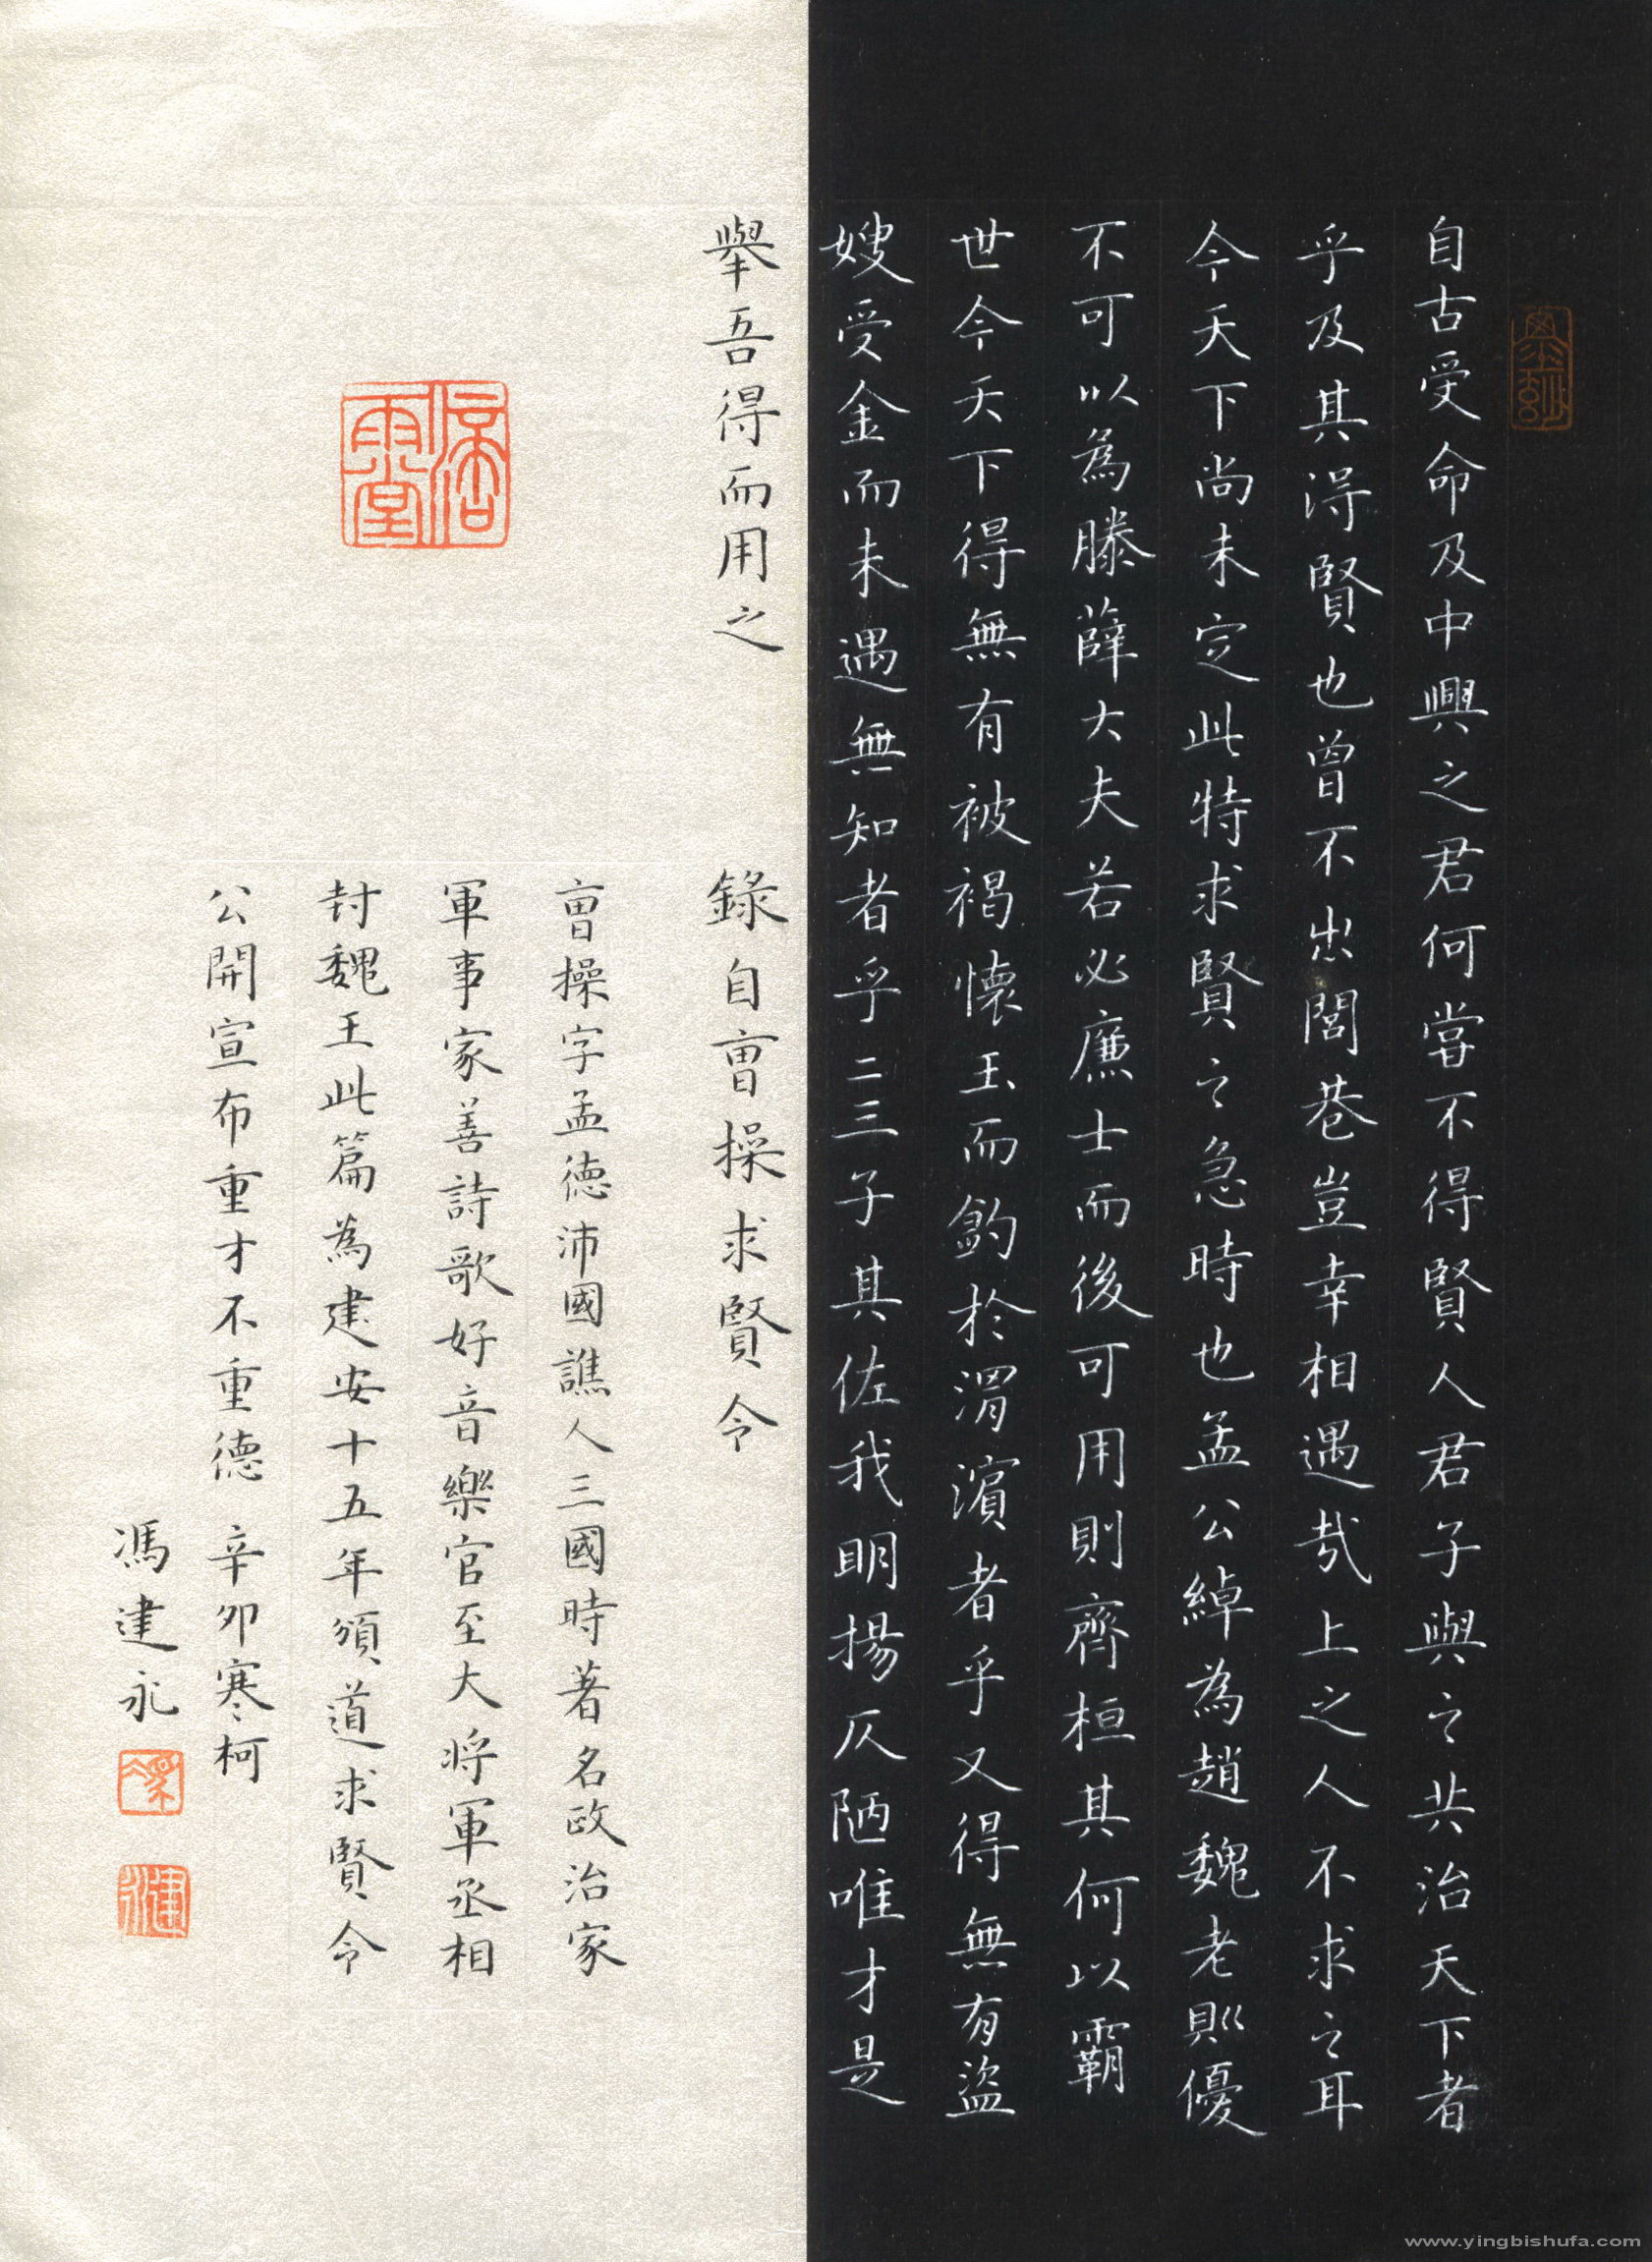 自古受命及中興之君何嘗不得賢人君子與之共治天下者
乎及其得賢也曾不出閭巷豈幸相遇哉上之人不求之耳
今天下尚未定此特求賢之急時也孟公綽為趙魏老則優
不可以為滕薛大夫若必廉士而後可用則齊桓其何以霸
世今天下得無有被褐懷玉而釣於渭濱者乎又得無有盜
嫂受金而未遇無知者乎二三子其佐我明揚仄陋唯才是
舉吾得而用之
錄自曹操求賢令
曹操字孟德沛國譙人三國時著名政治家
軍事家善詩歌好音樂官至大將軍丞相
封魏王此篇為建安十五年頒道求賢令
公開宣布重才不重德 辛卯寒柯
馮建永
www.yingbishufa.com